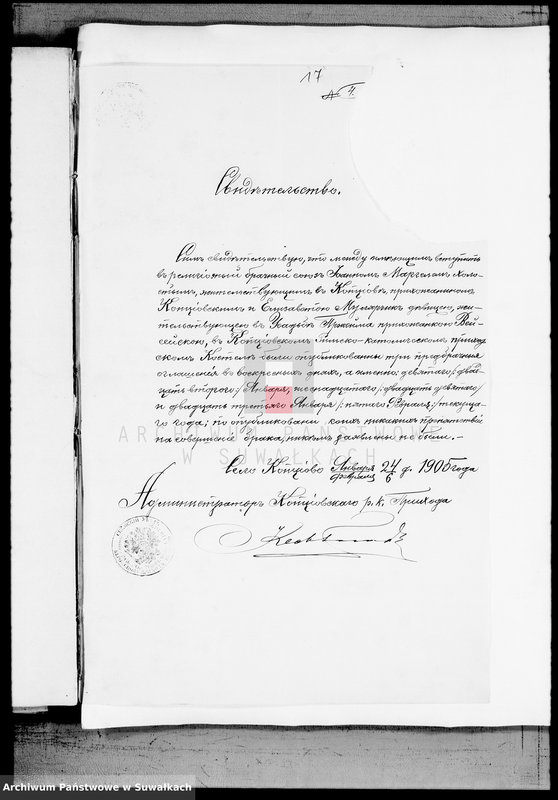 17
№ 4.
Свидѣтельство.
Симъ свидѣтельствую, что между имѣющими вступить
въ религіозный брачный союзъ Іоанномъ Маргелемъ холо-
стымъ, жительствующимъ въ Копціовѣ, прихожаниномъ
Копціовскимъ и Елизаветою Муляркик дѣвицею, жи-
тельствующею въ Усадьбѣ прихожанкою Вей-
сейскою, въ Копціовскомъ Римско-католическомъ приход
скомъ Костелѣ были опубликованы три предбрачныя
оглашенія въ воскресные дни, а именно: девятаго /двад
цать второго/ Января, шестнадцатаго /двадцать девятаго/
и двадцать третьяго Января /пятаго Февраля/ текуща-
го года; по опубликованіи коихъ никакихъ препятствій
на совершеніе брака, никѣмъ заявлены не были.-
Село Копціово Января/Февраля 24/6 д. 1905 года
Администраторъ Копціовскаго р. к. Прихода
ARCHIWUM PAŃSTWOWE
W SUWAŁKACH
Archiwum Państwowe w Suwałkach